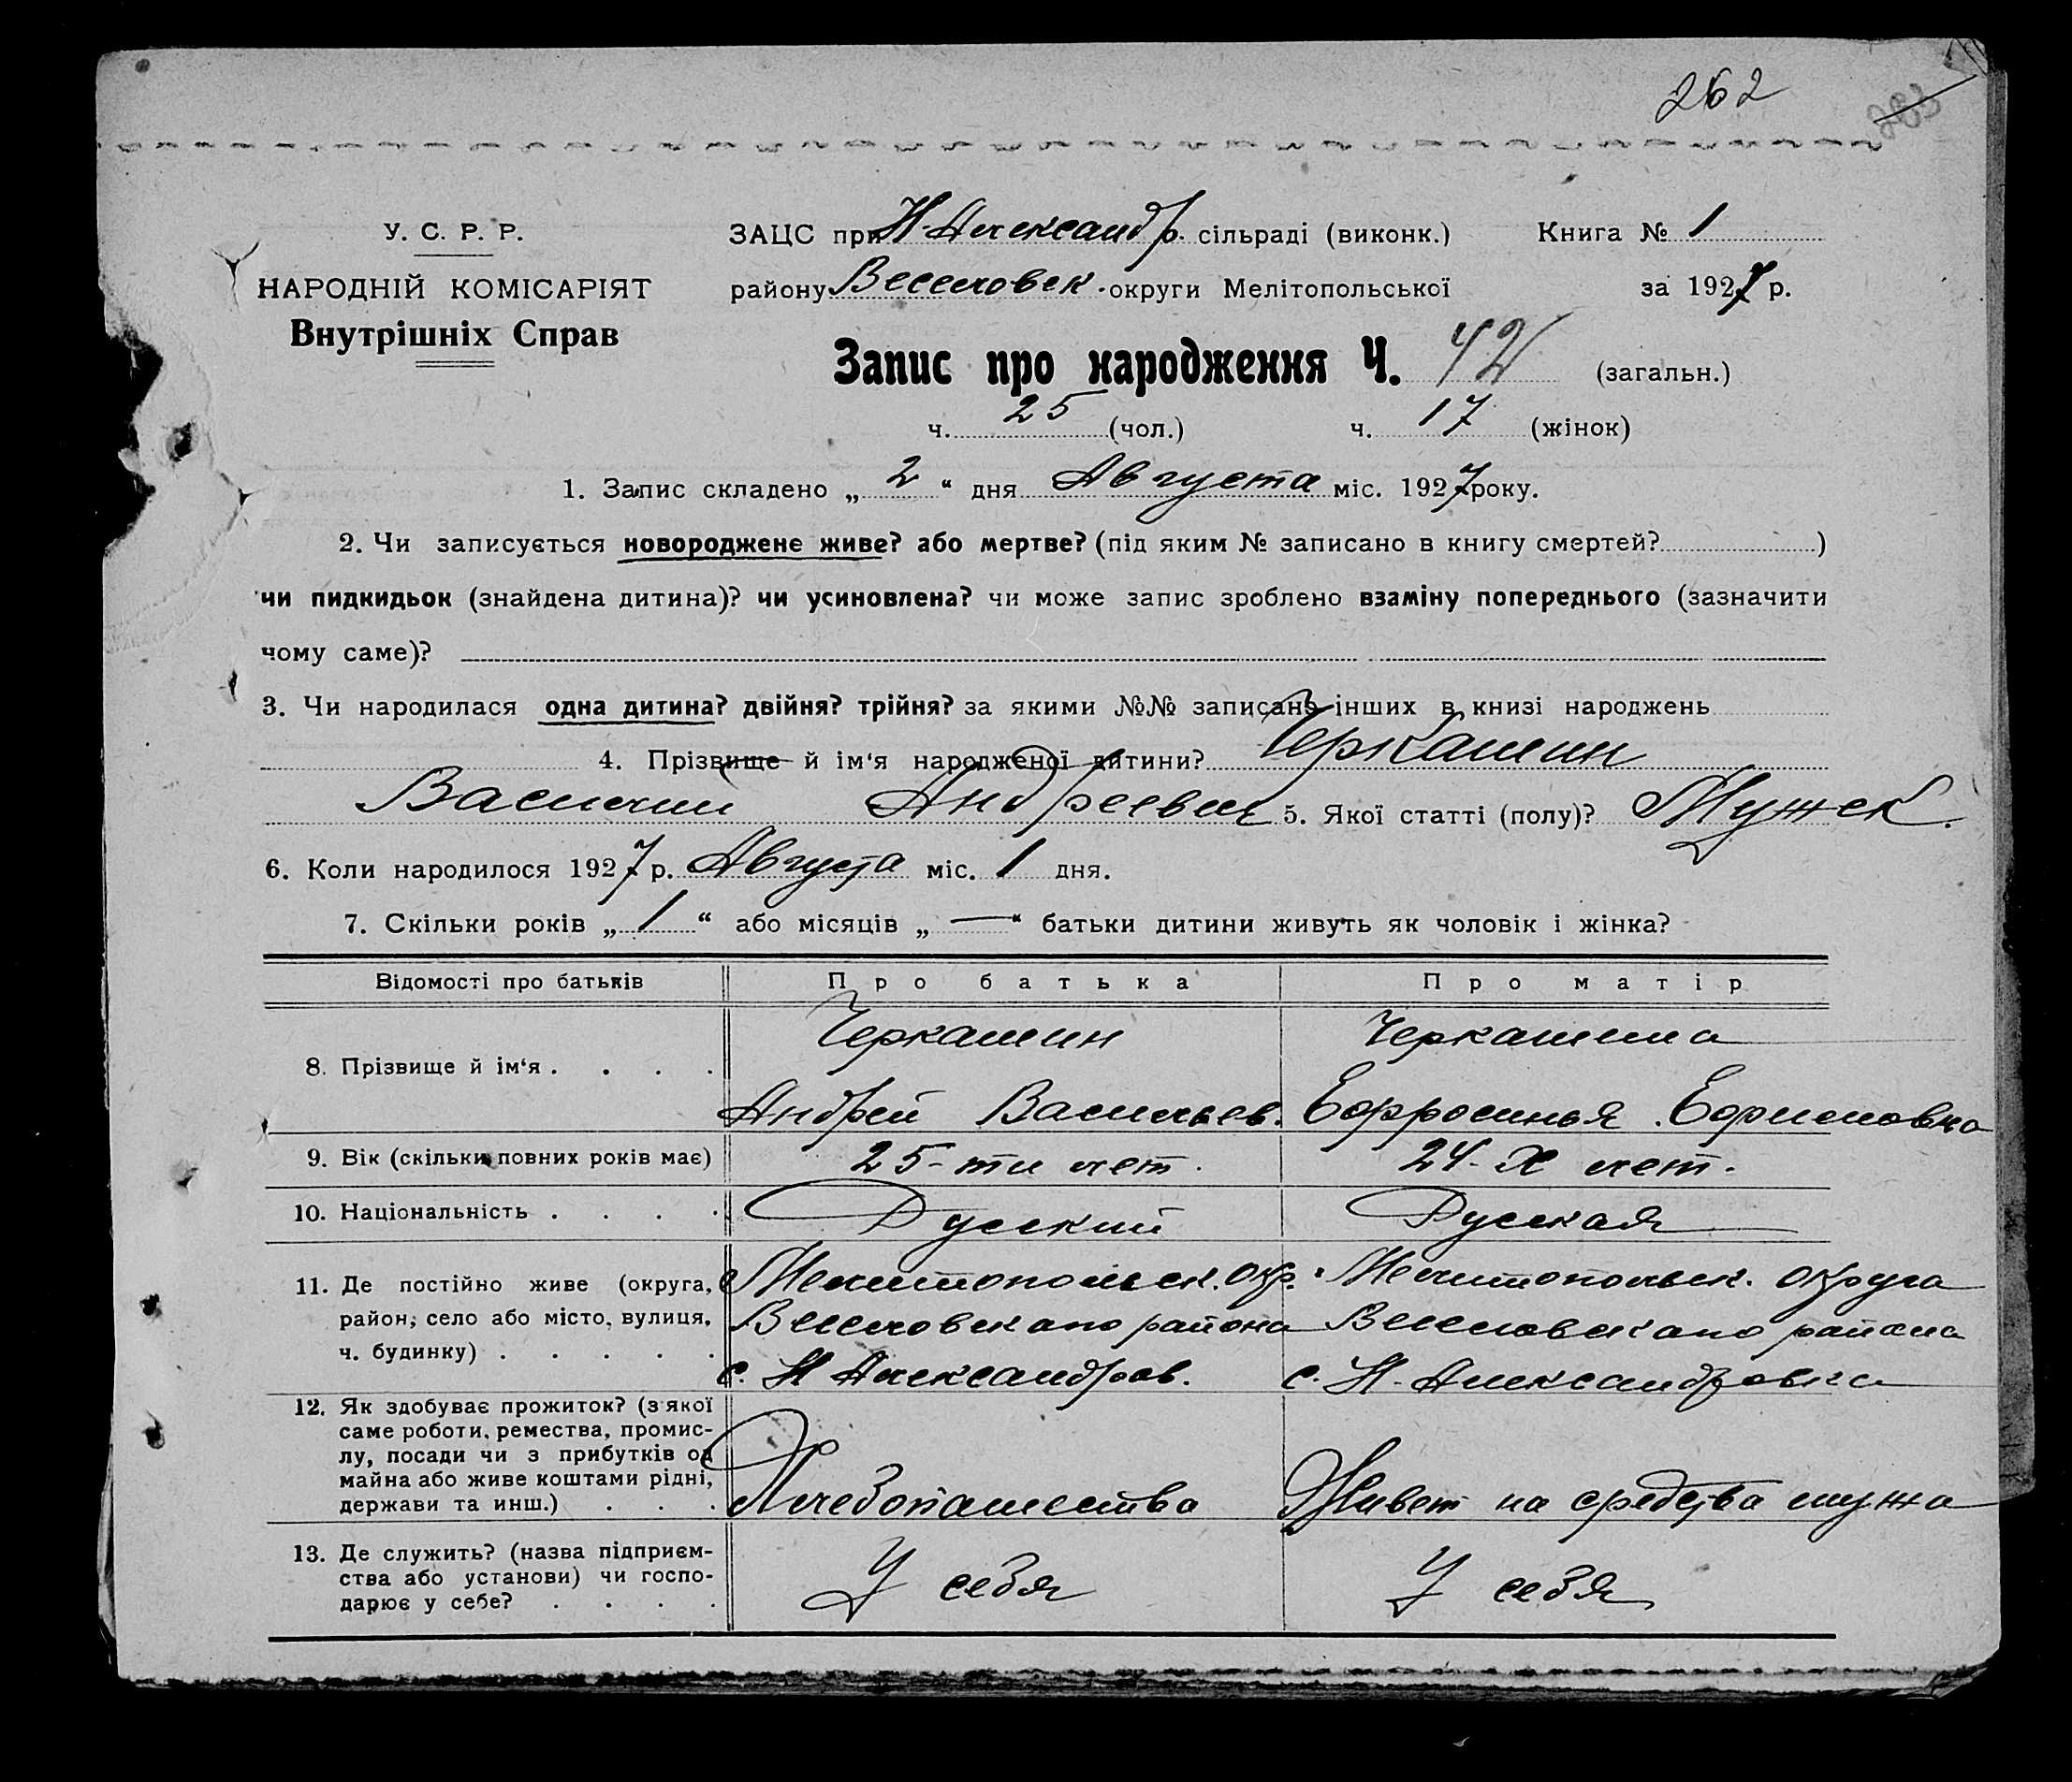 262
У. С. Р. Р.
НАРОДНІЙ КОМІСАРІЯТ
Внутрішніх Справ
ЗАЦС при Н-Александр. сільраді (виконк.) Книга № 1
району Веселовск. округи Мелітопольської за 1927 р.
Запис про народження Ч. 42 (загальн.)
ч. 25 (чол.) ч. 17 (жінок)
1. Запис складено „ 2 “ дня Августа міс. 1927 року.
2. Чи записується новороджене живе? або мертве? (під яким № записано в книгу смертей? )
чи пидкидьок (знайдена дитина)? чи усиновлена? чи може запис зроблено взаміну попереднього (зазначити
чому саме)?
3. Чи народилася одна дитина? двійня? трійня? за якими №№ записано інших в книзі народжень
4. Прізвище й ім‘я народженої дитини? Черкашин
Василий Андреевич 5. Якої статті (полу)? Мужск.
6. Коли народилося 1927 р. Августа міс. 1 дня.
7. Скільки років „ 1 “ або місяців „ — “ батьки дитини живуть як чоловік і жінка?
Відомості про батьків Про батька Про матір
8. Прізвище й ім‘я . . . . Черкашин Черкашина
Андрей Васильев. Ефросинья Ефимовна
9. Вік (скільки повних років має) 25-ти лет. 24-х лет.
10. Національність . . . . Русский Русская
11. Де постійно живе (округа, Мелитопольск. окр. Мелитопольск. округа
район, село або місто, вулиця, Веселовского района Веселовского района
ч. будинку) . . . . . с. Н Александров. с. Н-Александровка
12. Як здобуває прожиток? (з якої
саме роботи, ремества, промис-
лу, посади чи з прибутків од
майна або живе коштами рідні,
держави та инш.) . . . Хлебопашество Живет на средства мужа
13. Де служить? (назва підприєм-
ства або установи) чи госпо- У себя У себя
дарює у себе? . . . .